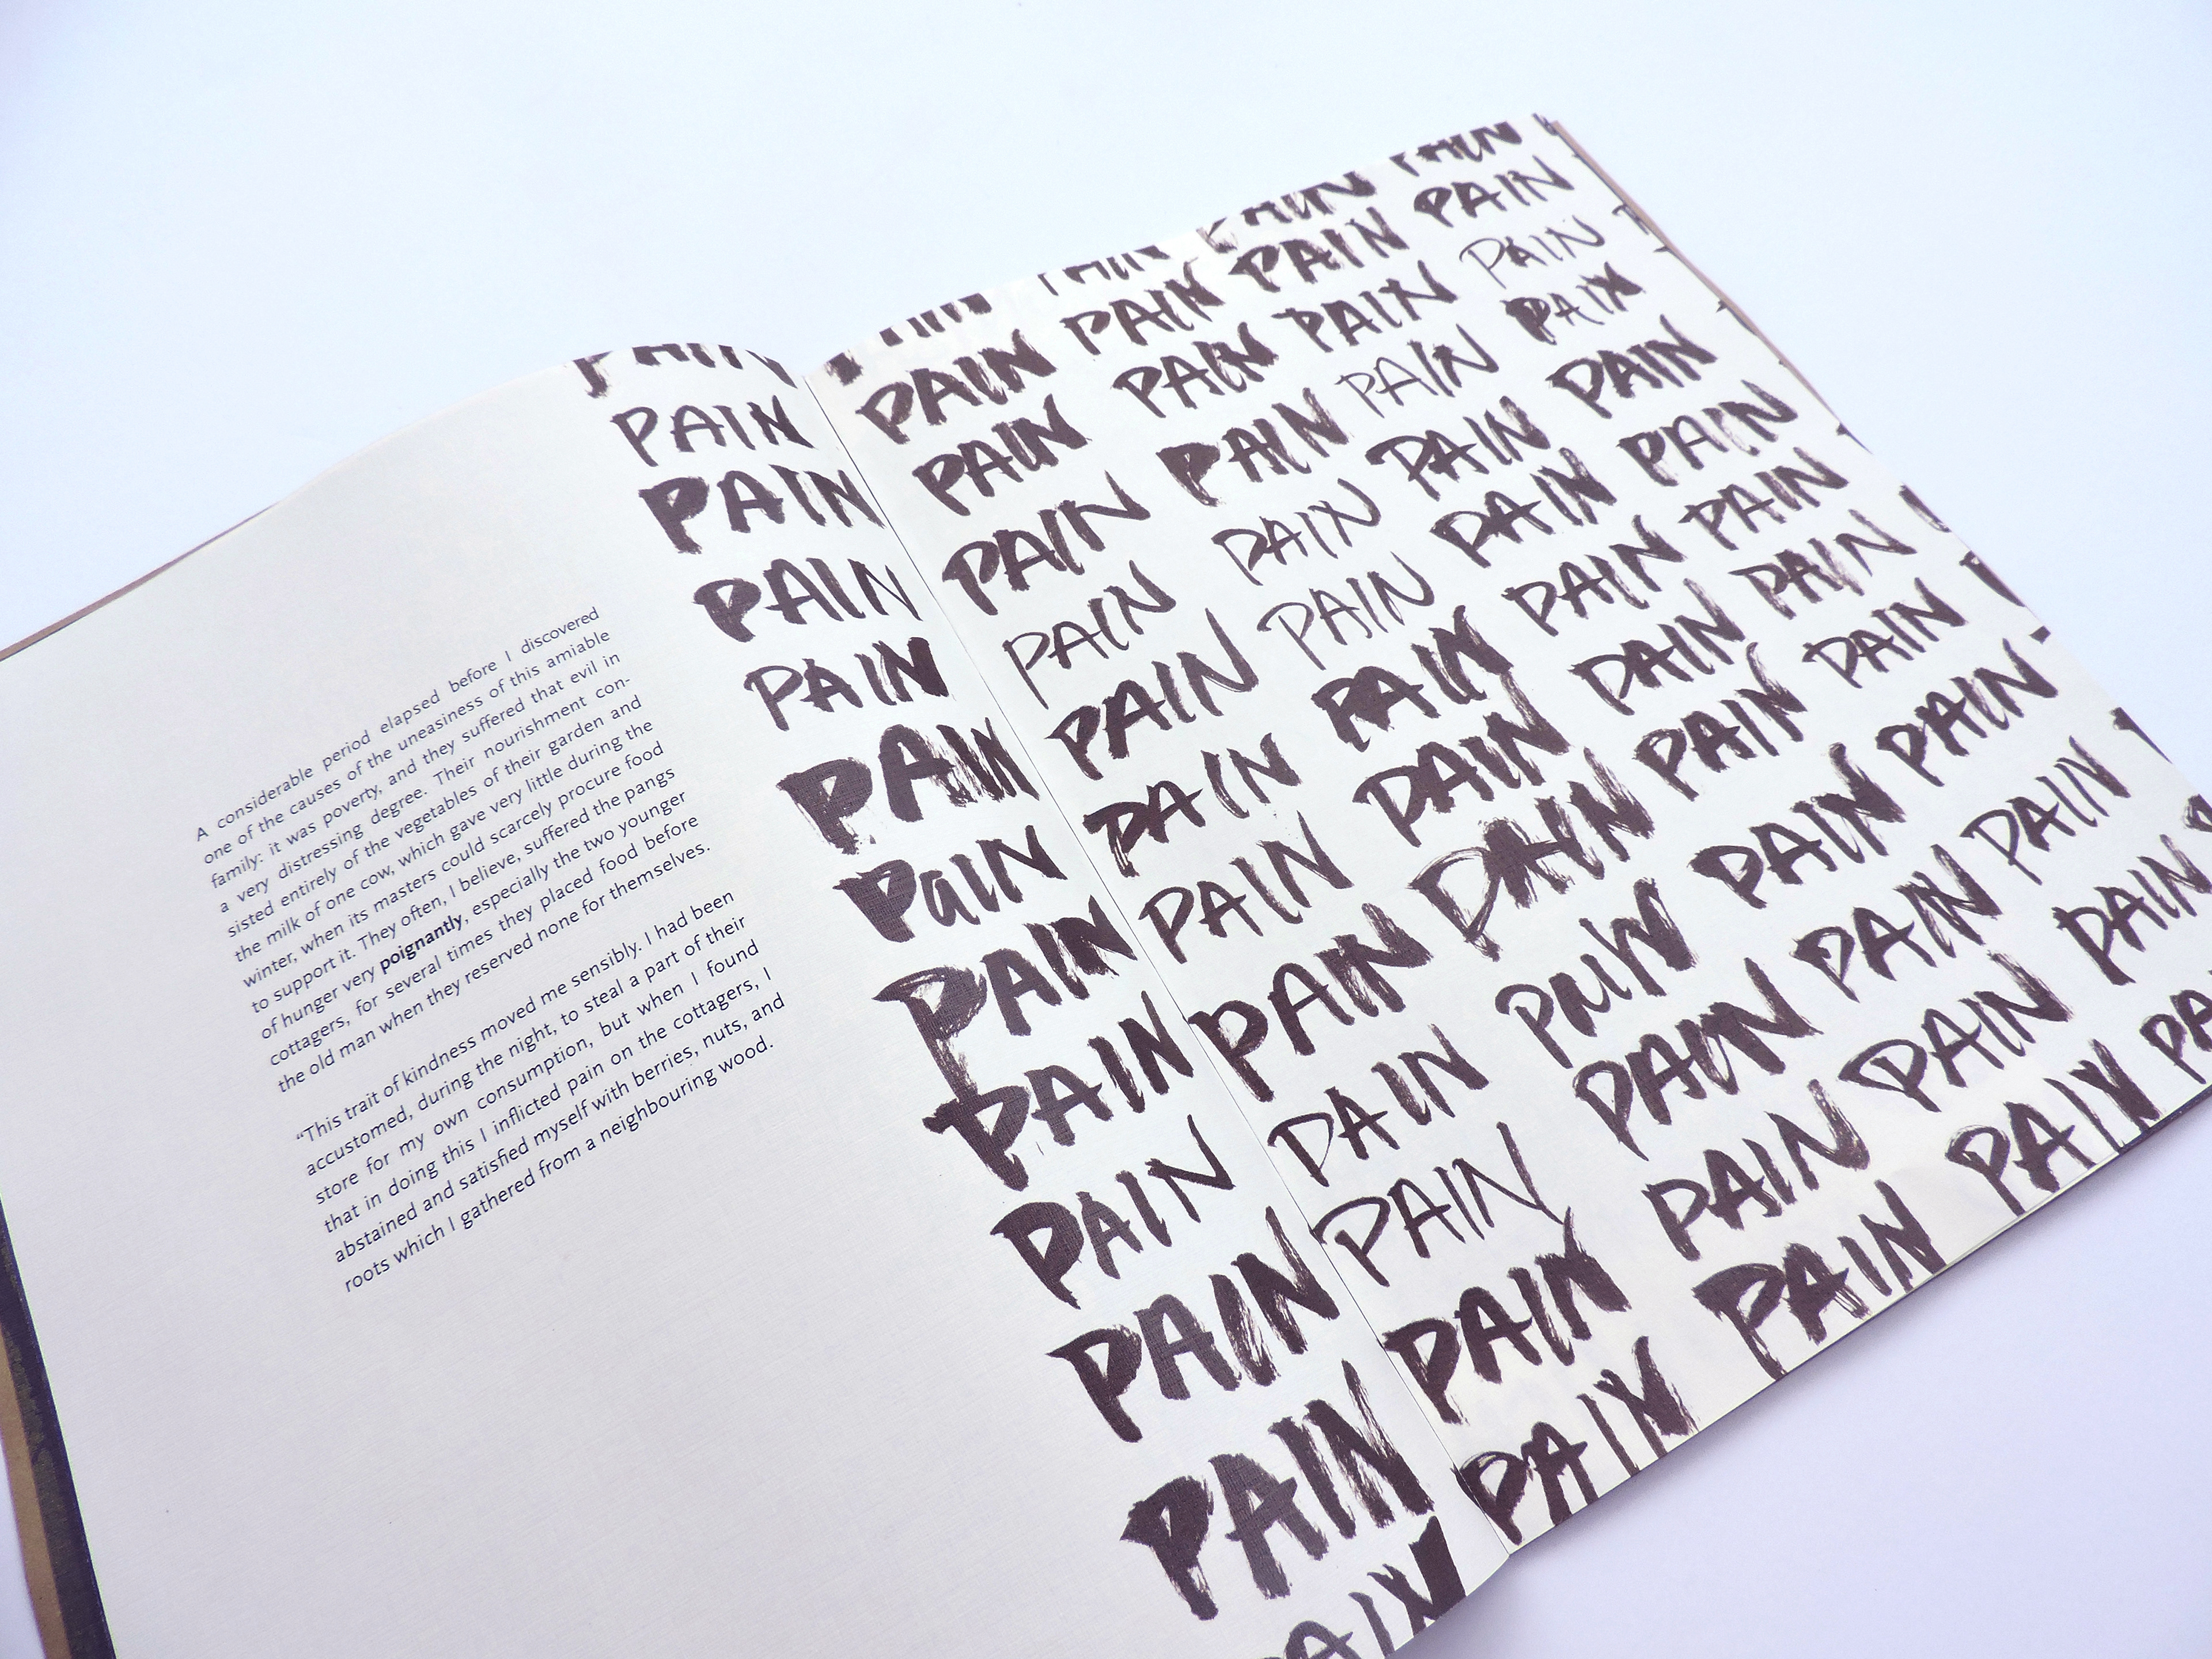 A considerable period elapsed before I discovered
one of the causes of the uneasiness of this amiable
family: it was poverty, and they suffered that evil in
a very distressing degree. Their nourishment con-
sisted entirely of the vegetables of their garden and
the milk of one cow, which gave very little during the
winter, when its masters could scarcely procure food
to support it. They often, I believe, suffered the pangs
of hunger very poignantly, especially the two younger
cottagers, for several times they placed food before
the old man when they reserved none for themselves.
“This trait of kindness moved me sensibly. I had been
accustomed, during the night, to steal a part of their
store for my own consumption, but when I found
that in doing this I inflicted pain on the cottagers, I
abstained and satisfied myself with berries, nuts, and
roots which I gathered from a neighbouring wood.
PAIN
PAIN PAIN PAIN PAIN PAIN
PAIN PAIN PAIN PAIN PAIN
PAIN PAIN PAIN PAIN PAIN
PAIN PAIN PAIN PAIN PAIN
PAIN PAIN PAIN PAIN PAIN
PaIN PAIN PAIN PAIN PAIN
PAIN PAIN PAIN PAIN PAIN
PAIN PAIN PAIN PAIN PAIN
PAIN PAIN PAIN PAIN PAIN
PAIN PAIN PAIN PAIN PAIN
PAIN PAIN PAIN PAIN PAIN
PAIN PAIN PAIN PAIN PA